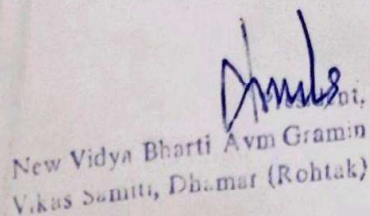 New Vidya Bharti Avm Gramin
Vikas Samiti, Dhamar (Rohtak)